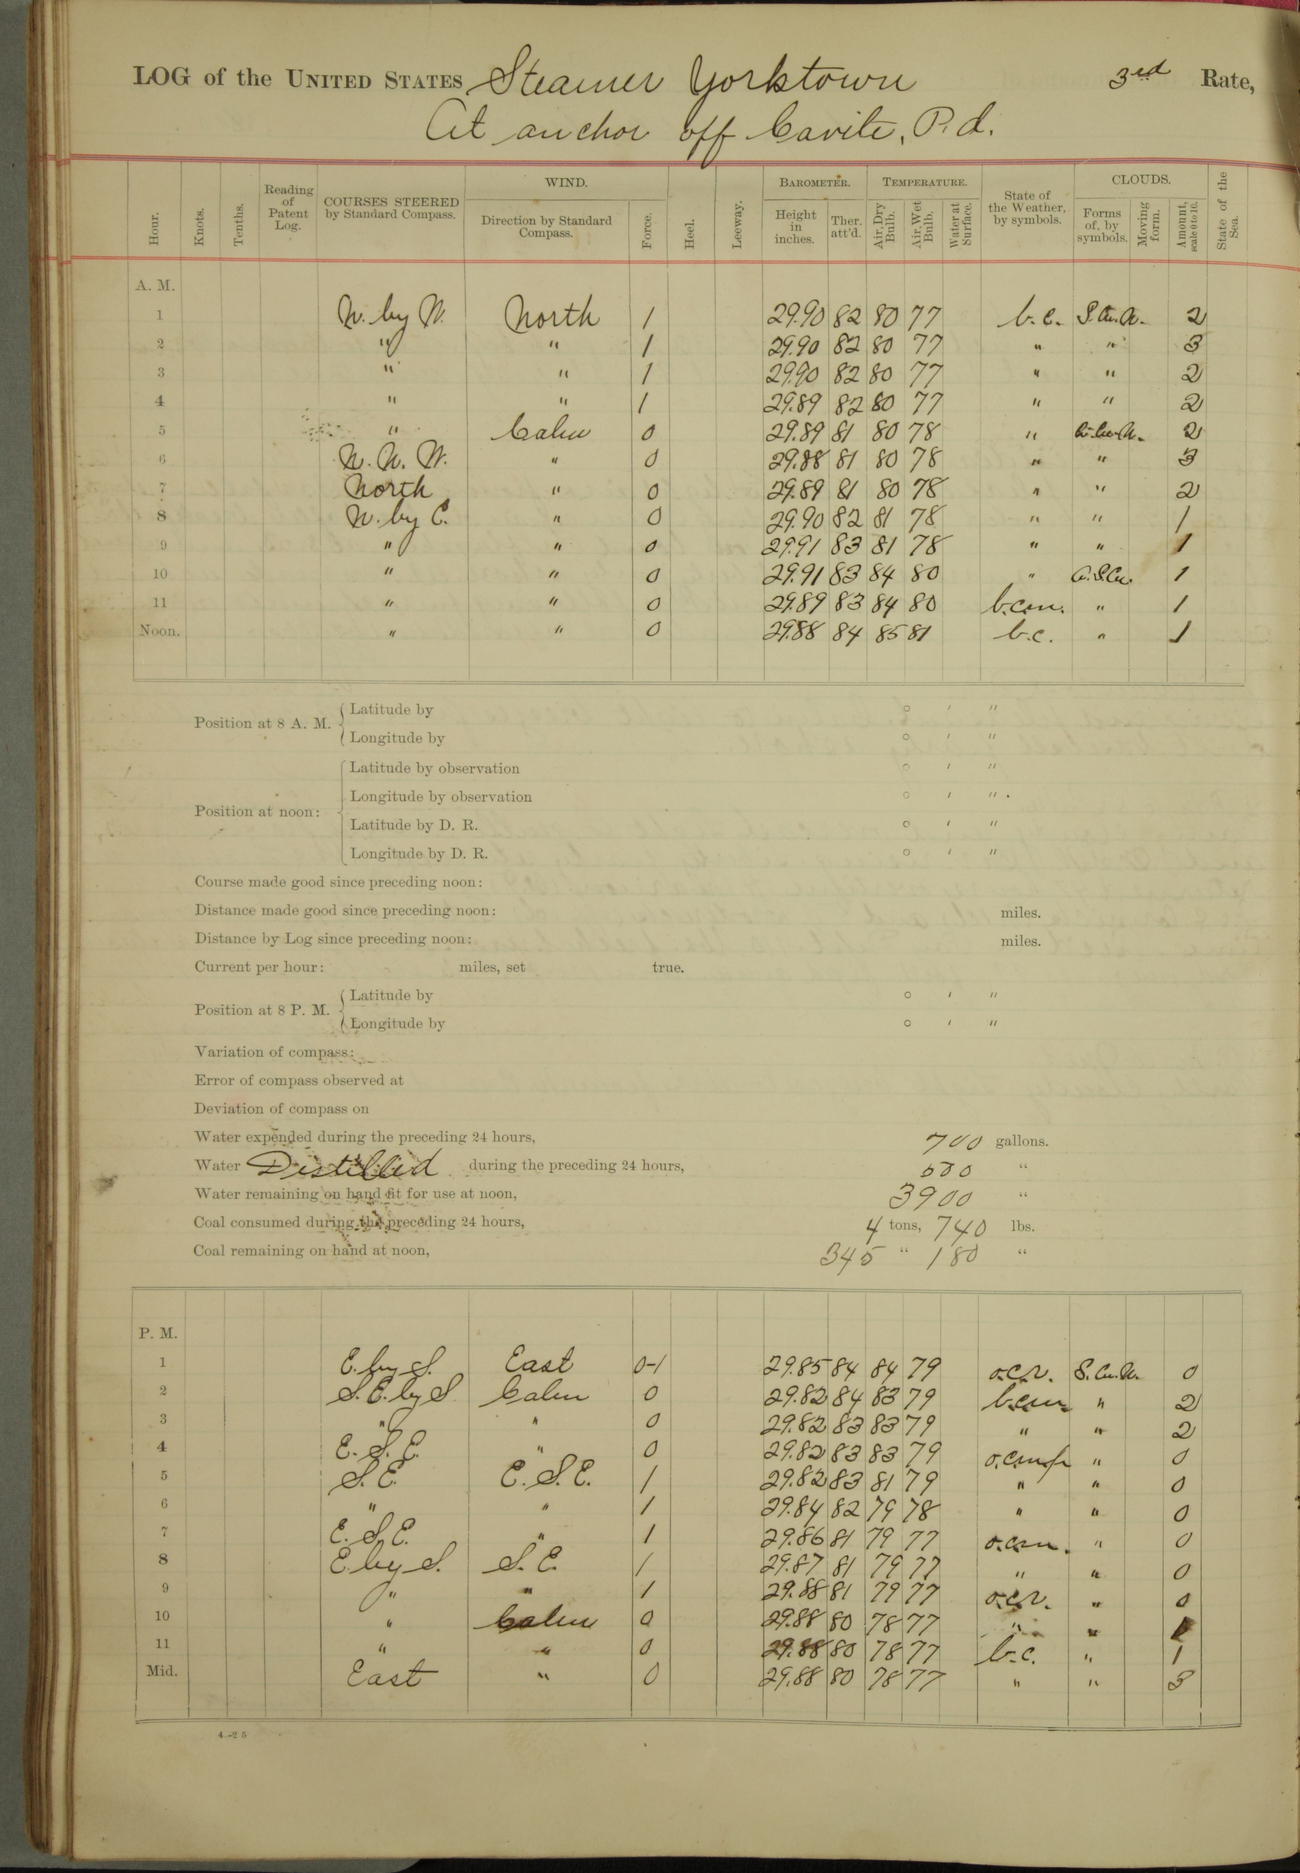 LOG of the UNITED STATES Steamer Yorktown 3rd Rate,
At anchor off Cavite, P.d.
Hour. Knots. Tenths. Reading of Patent Log. COURSES STEERED by Standard Compass. WIND. Direction by Standard Compass. Force. Heel. Leeway. BAROMETER. Height in inches. Ther. att'd. TEMPERATURE. Air, Dry Bulb. Air, Wet Bulb. Water at Surface. State of the Weather, by symbols. CLOUDS. Forms of, by symbols. Moving form. Amount, scale 0 to 10. State of the Sea.
A. M.
1 N. by W. North 1 29.90 82 80 77 b.c. S.Cu.N. 2
2 " " 1 29.90 82 80 77 " " 3
3 " " 1 29.90 82 80 77 " " 2
4 " " 1 29.89 82 80 77 " " 2
5 " Calm 0 29.89 81 80 78 " 2
6 N. N. W. " 0 29.88 81 80 78 " " 3
7 North " 0 29.89 81 80 78 " " 2
8 N. by E. " 0 29.90 82 81 78 " " 1
9 " " 0 29.91 83 81 78 " " 1
10 " " 0 29.91 83 84 80 " C.S.Cu. 1
11 " " 0 29.89 83 84 80 b.c.m. " 1
Noon. " " 0 29.88 84 85 81 b.c. " 1
Position at 8 A. M. Latitude by ° ′ ″
Longitude by ° ′ ″
Position at noon: Latitude by observation ° ′ ″
Longitude by observation ° ′ ″
Latitude by D. R. ° ′ ″
Longitude by D. R. ° ′ ″
Course made good since preceding noon:
Distance made good since preceding noon: miles.
Distance by Log since preceding noon: miles.
Current per hour: miles, set true.
Position at 8 P. M. Latitude by ° ′ ″
Longitude by ° ′ ″
Variation of compass:
Error of compass observed at
Deviation of compass on
Water expended during the preceding 24 hours, 700 gallons.
Water Distilled during the preceding 24 hours, 500 "
Water remaining on hand fit for use at noon, 3900 "
Coal consumed during the preceding 24 hours, 4 tons, 740 lbs.
Coal remaining on hand at noon, 345 " 180 "
P. M.
1 E. by S. East 0-1 29.85 84 84 79 o.c.r. S.Cu.N. 0
2 S.E. by S Calm 0 29.82 84 83 79 b.c.m. " 2
3 " " 0 29.82 83 83 79 " " 2
4 E. S. E. " 0 29.82 83 83 79 " 0
5 S. E. E. S. E. 1 29.82 83 81 79 " " 0
6 " " 1 29.84 82 79 78 " " 0
7 E. S. E. " 1 29.86 81 79 77 o.c.m. " 0
8 E. by S. S. E. 1 29.87 81 79 77 " " 0
9 " " 1 29.88 81 79 77 o.c.r. " 0
10 " Calm 0 29.88 80 78 77 " "
11 " " 0 29.88 80 78 77 b.c. " 1
Mid. East " 0 29.88 80 78 77 " " 3
4—25